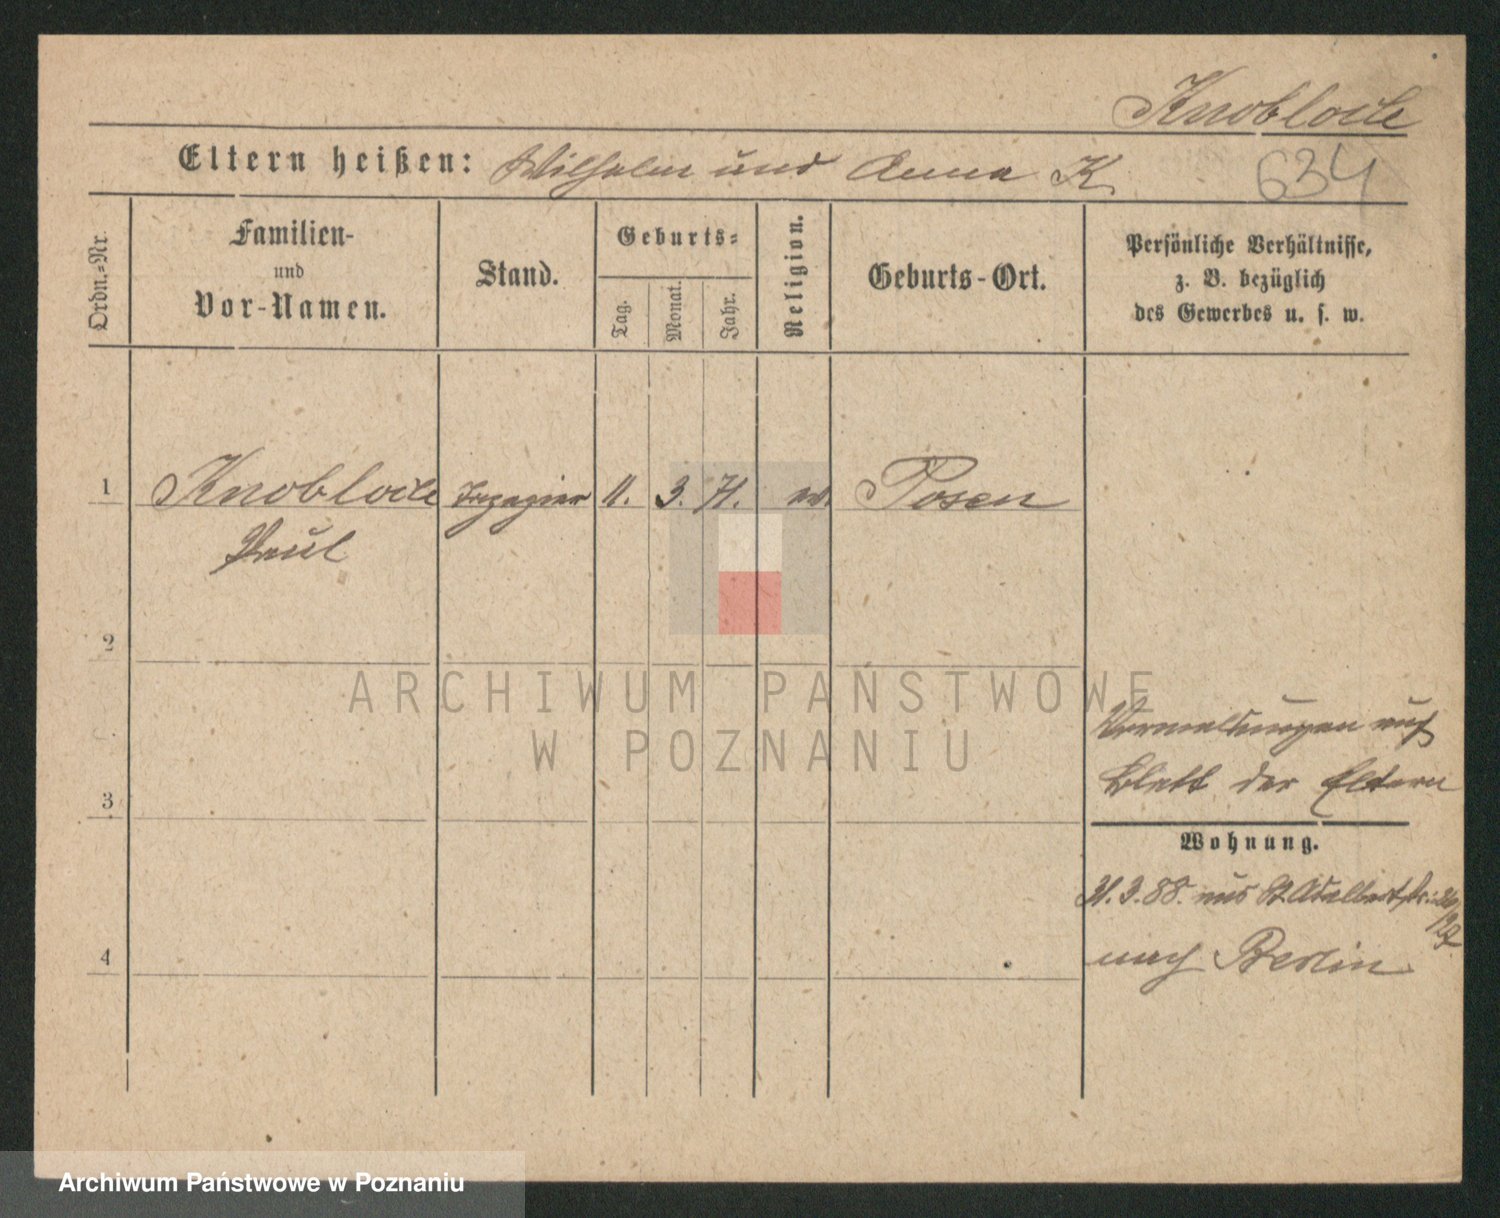 Knobloch
Eltern heißen: Wilhelm und Anna K.
634
Ordn.-Nr.
Familien-
und
Vor-Namen.
Stand.
Geburts-
Tag.
Monat.
Jahr.
Religion.
Geburts-Ort.
Persönliche Verhältnisse,
z. B. bezüglich
des Gewerbes u. s. w.
1 Knobloch Tapezier 11. 3. 71. ev. Posen
Paul
2
3
4
ARCHIWUM PAŃSTWOWE
W POZNANIU
auf
Blatt der Eltern
Wohnung.
31.3.88. aus St. Adalbertstr.
nach Berlin
Archiwum Państwowe w Poznaniu